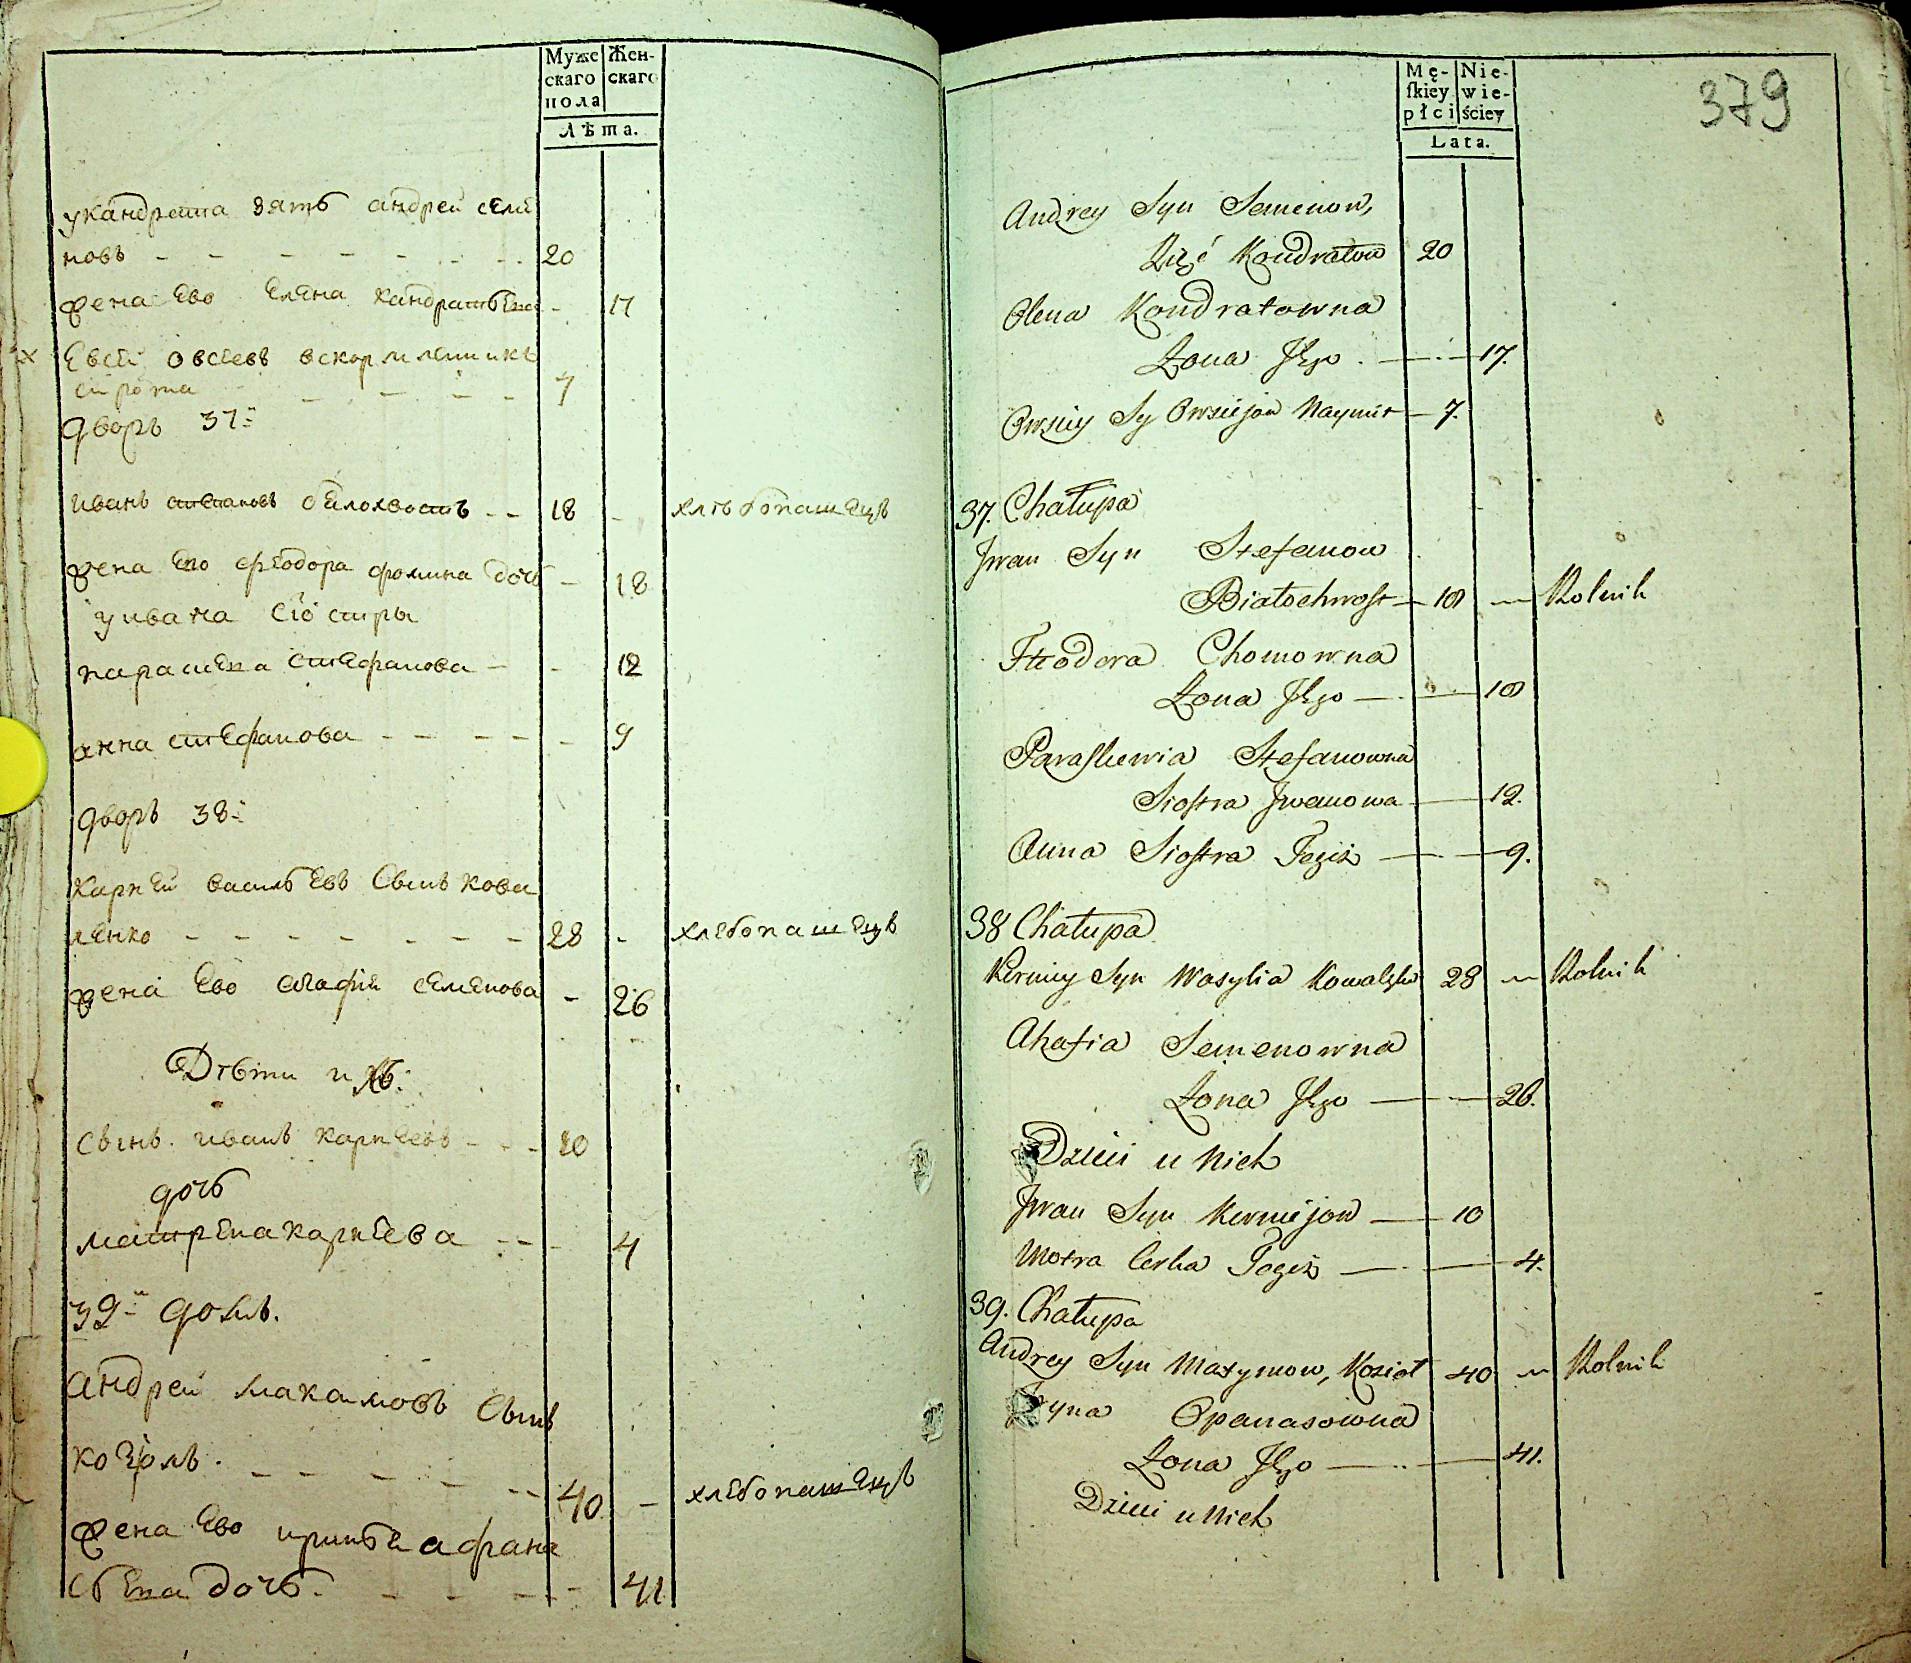 Муже
скаго
пола
Жен-
скаго
Лѣта.
укандрата зять андрей семе
новъ - - - - - - - 20
жена ево елена кандратьева - 17
× евсей овсеевъ вскормленикъ
сирота - - - - 7
дворъ 37й
иванъ степановъ белохвостъ - - 18 - хлѣбопашецъ
жена ево феодора фомина дочь - 18
уивана сестры
параскева стефанова - - 12
анна стефанова - - - - - 9
дворъ 38й
карпей васильевъ сынъ кова
ленко - - - - - - - 28 - хлебопашецъ
жена ево агафия семенова - 26
Дѣти ихъ:
сынъ. иванъ карпеевъ - - - 10
дочь
матрена карпеева - - - 4
39й домъ.
андрей макаимовъ сынъ
козіолъ. - - - - - - 40 - хлебопашецъ
жена ево ириня афана
сьева дочь. - - - - 41
Mę-
ſkiey
płci
Nie-
wie-
ściey
Lata.
379
Andrey Syn Semenow,
Zięć Kondratow 20
Olena Kondratowna
Żona Jego . — 17.
Owsiey Sy Owsiejow Naymit — 7.
37. Chałupa
Jwan Syn Stefanow
Białochwost — 18 — Rolnik
Fteodora Chomowna
Żona Jego — 18
Paraskewia Stefanowna
Siostra Jwanowa — 12.
Anna Siostra Tegiż — 9.
38 Chałupa
Kerniey Syn Wasylia Kowalęko 28 — Rolnik
Ahafia Semenowna
Żona Jego — 26.
Dzieci u Nich
Jwan Syn Kerniejow — 10
Motra Cerka Tegiż — 4.
39. Chałupa
Andrey Syn Maxymow, Kozioł 40 — Rolnik
Jryna Opanasowna
Żona Jego — 41.
Dzieci u Nich